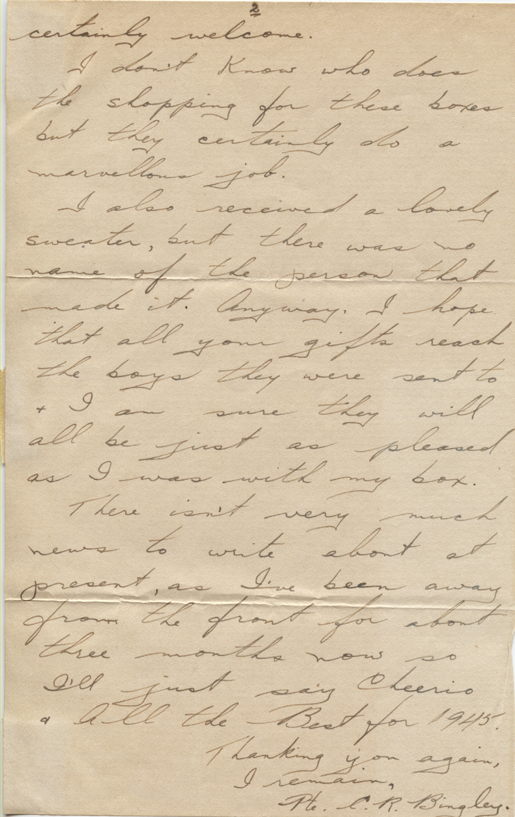 2
certainly welcome.
I don't know who does
the shopping for these boxes
but they certainly do a
marvellous job.
I also received a lovely
sweater, but there was no
name of the person that
made it. Anyway. I hope
that all your gifts reach
the boys they were sent to
+ I am sure they will
all be just as pleased
as I was with my box.
There isn't very much
news to write about at
present, as I've been away
from the front for about
three months now so
I'll just say Cheerio
& All the Best for 1945.
Thanking you again,
I remain,
Pte. C. R. Bingley.